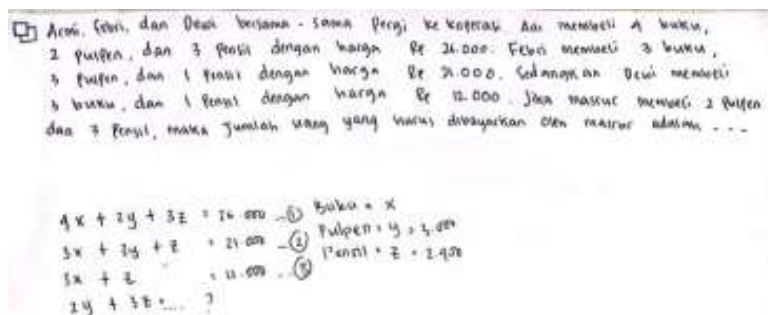 Arni, Febri, dan Dewi bersama - sama Pergi ke koperasi. Ani membeli 4 buku,
2 pulpen, dan 3 Pensil dengan harga Rp 26.000. Febri membeli 3 buku,
3 Pulpen, dan 1 Pensil dengan harga Rp 21.000. Sedangkan Dewi membeli
3 buku, dan 1 Pensil dengan harga Rp 12.000. Jika masrur membeli 2 Pulpen
dan 3 Pensil, maka Jumlah uang yang harus dibayarkan oleh masrur adalah ...
4x + 2y + 3z = 26.000 - ①
3x + 3y + z = 21.000 - ②
3x + z = 12.000 - ③
2y + 3z = .... ?
Buku = x
Pulpen = y = 3.000
Pensil = z =